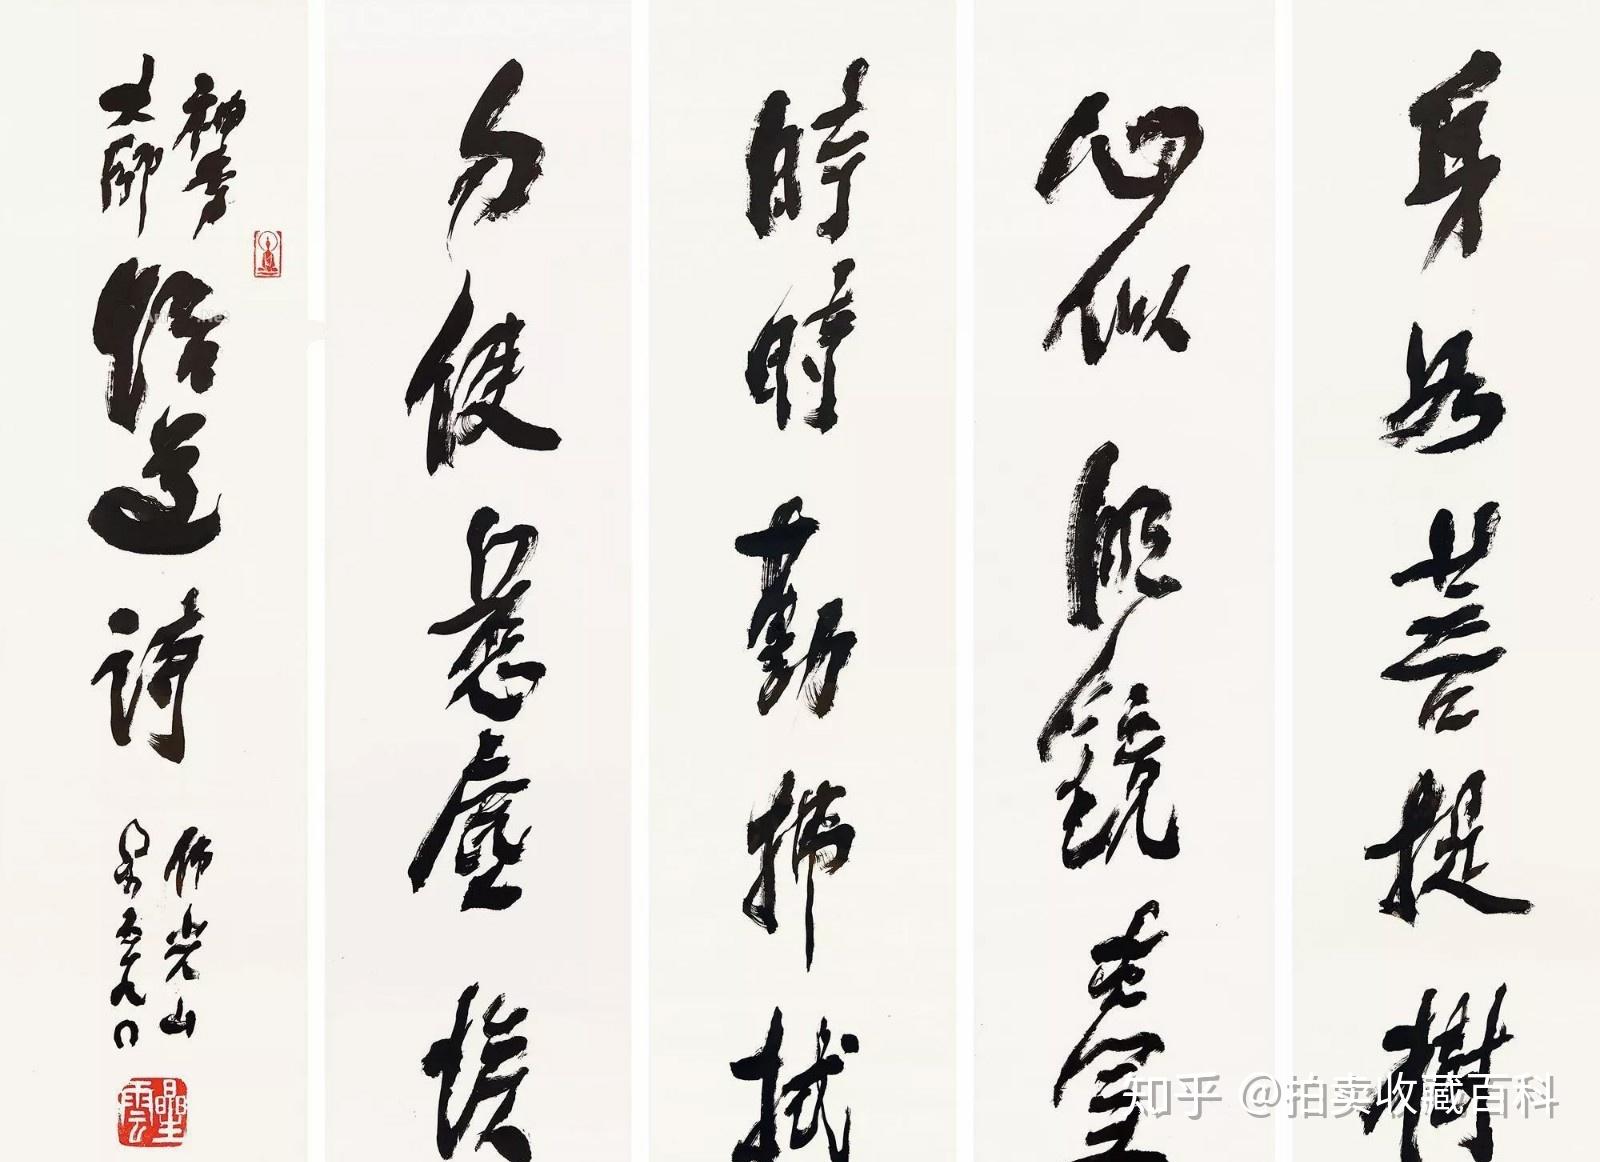 身如菩提樹
心似明鏡臺
時時勤拂拭
勿使惹塵埃
神秀
大師
悟道詩
佛光山
星雲
知乎 @拍卖收藏百科